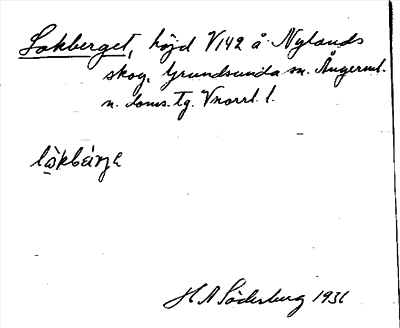 Lokberget, höjd V142 å Nylands
skog. Grundsunda sn. Ångerml.
n. doms. tg. Vnorrl. l.
låkbärje
H A Söderberg 1931